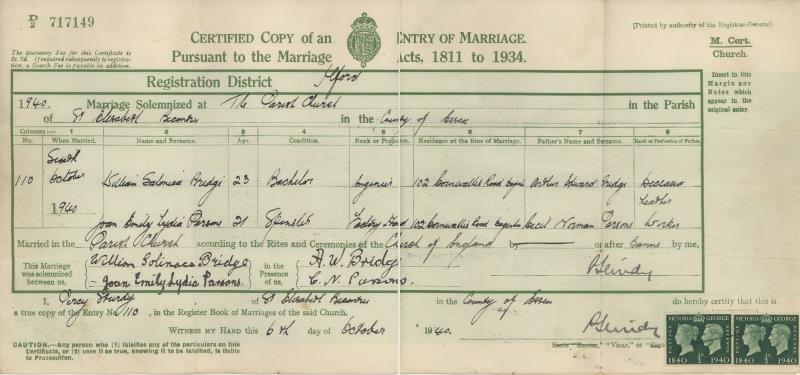 D/2 717149
CERTIFIED COPY of an ENTRY OF MARRIAGE.
[Printed by authority of the Registrar-General.]
The Statutory Fee for this Certificate is
2s. 7d. If required subsequently to registra-
tion, a Search Fee is payable in addition.
Pursuant to the Marriage Acts, 1811 to 1934.
M. Cert.
Church.
Registration District Ilford
Insert in this
Margin any
Notes which
appear in the
original entry.
1940. Marriage Solemnized at The Parish Church in the Parish
of St Elisabeth Becontree in the County of Essex
Columns:— 1 2 3 4 5 6 7 8
No. When Married. Name and Surname. Age. Condition. Rank or Profession. Residence at the time of Marriage. Father's Name and Surname. Rank or Profession of Father.
110 October William Bridge 23 Bachelor Engineer 102 Cornwallis Road Arthur Edward Bridge Deceased
1940
Joan Emily Lydia Parsons 21 Spinster Factory Hand 102 Cornwallis Road Cecil Norman Parsons Leather Worker
Married in the Parish Church according to the Rites and Ceremonies of the Church of England by or after Banns by me,
This Marriage was solemnized between us, William Solinaca Bridge Joan Emily Lydia Parsons. in the Presence of us, A. W. Bridge C. N. Parsons.
I, Percy Sturdy of St Elisabeth Becontree in the County of Essex do hereby certify that this is
a true copy of the Entry No. 110, in the Register Book of Marriages of the said Church.
WITNESS MY HAND this 6th day of October 1940.
CAUTION.—Any person who (1) falsifies any of the particulars on this
Certificate, or (2) uses it as true, knowing it to be falsified, is liable
to Prosecution.
State "Rector," "Vicar," or
POSTAGE VICTORIA GEORGE 1840 ½d 1940
POSTAGE VICTORIA GEORGE 1840 ½d 1940